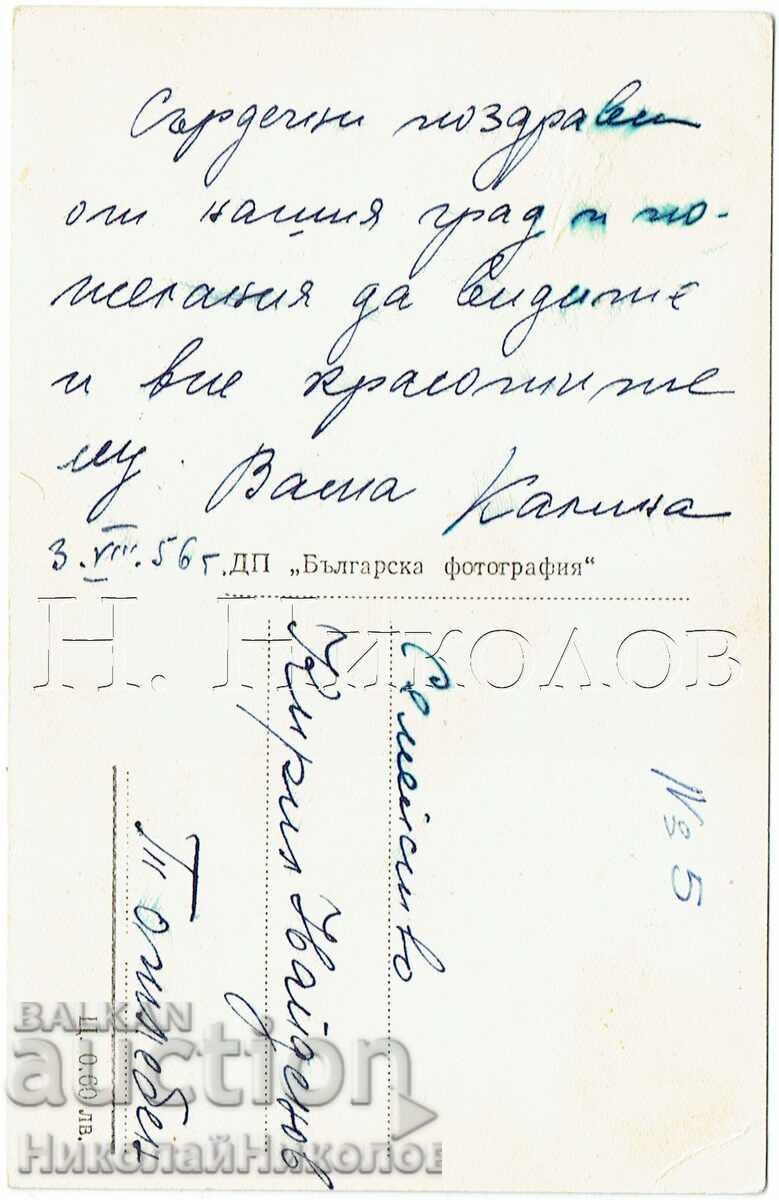 Сърдечни поздрави
от нашия град и по-
желания да видите
и вие красотите
му. Васил Калина
3.VIII.56 г.
ДП „Българска фотография“
Н. Николов
Семейство
Кирил Найденов
Тотлебен
№ 5
Ц. 0.60 лв.
BALKAN
auction
НиколайНиколов